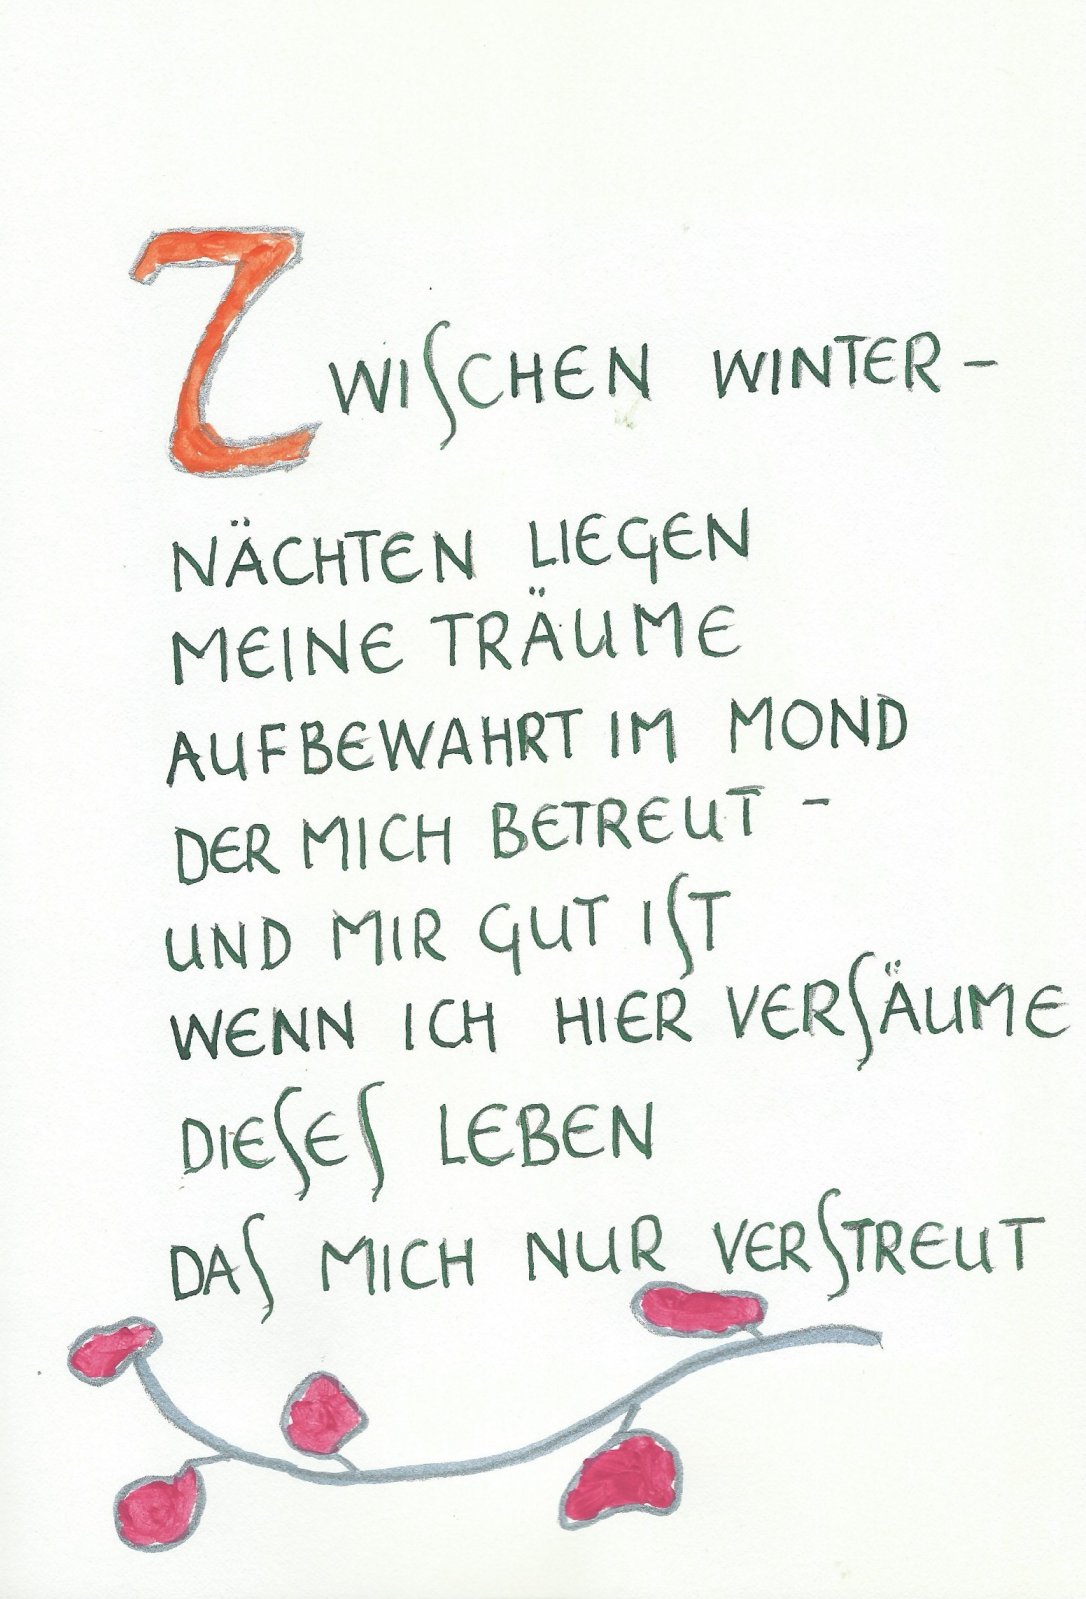 ZWISCHEN WINTER-
NÄCHTEN LIEGEN
MEINE TRÄUME
AUFBEWAHRT IM MOND
DER MICH BETREUT -
UND MIR GUT IST
WENN ICH HIER VERSÄUME
DIESES LEBEN
DAS MICH NUR VERSTREUT